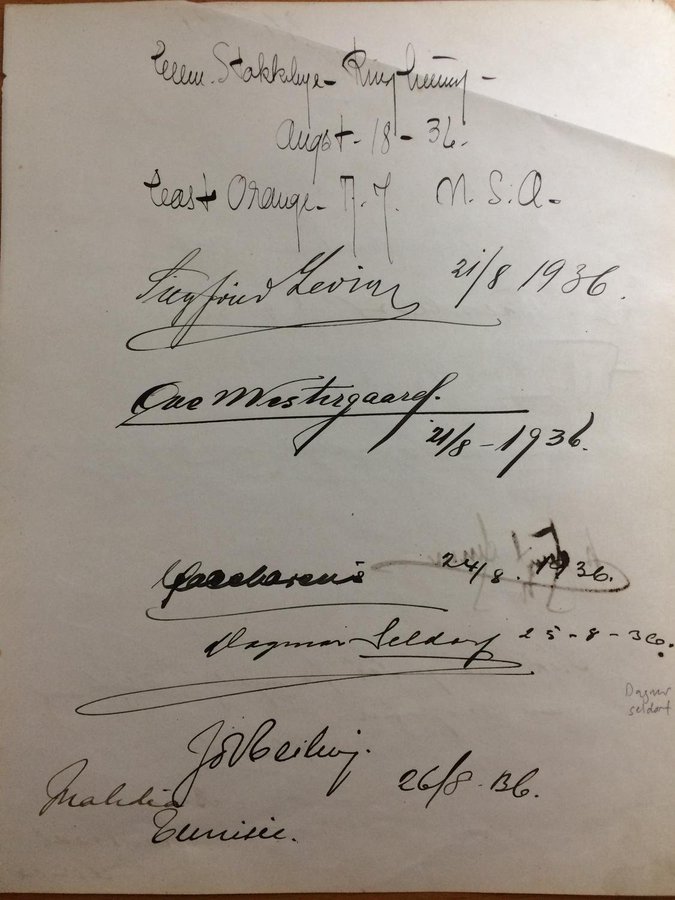 Stokkebye -
Augst - 18 - 36.
East Orange - N. J. U. S. A -
Siegfried Levin 21/8 1936.
Ove Westergaard.
21/8 - 1936.
24/8. 1936.
Dagmar Seldorf 25 - 8 - 36.
Dagmar
seldorf
26/8 - 36.
Mahdia
Tunisie.